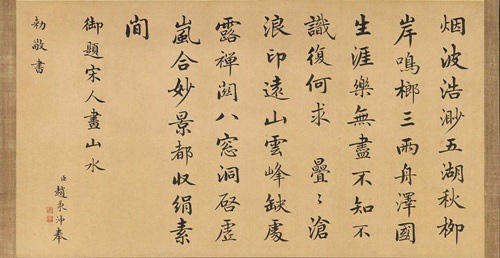 烟波浩渺五湖秋柳
岸鳴榔三兩舟澤國
生涯樂無盡不知不
識復何求 疊〻滄
浪印遠山雲峰缺處
露禪關八窓洞啓虛
嵐合妙景都收絹素
間
御題宋人畫山水
臣趙秉沖奉
勅敬書